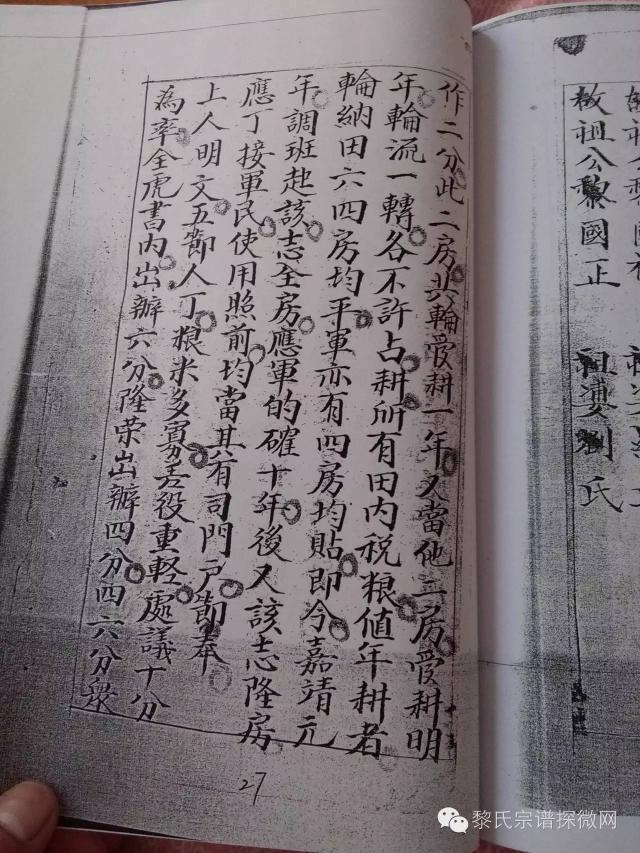 作二分此二房共輪受耕一年又當他三房受耕明
年輪流一轉各不許占耕所有田內税粮值年耕者
輪納田六四房均平軍亦有四房均貼即今嘉靖元
年調班起該志全房應軍的確十年後又該志隆房
應丁接軍民使用照前均當其有司門戸節奉
上人明文五節人丁粮米多寡丢役重輕處議十分
為率全虎書内出辦六分隆荣出辦四分四六分衆
27
祖公黎國
故祖公黎國正 祖婆劉氏
黎氏宗谱探微网